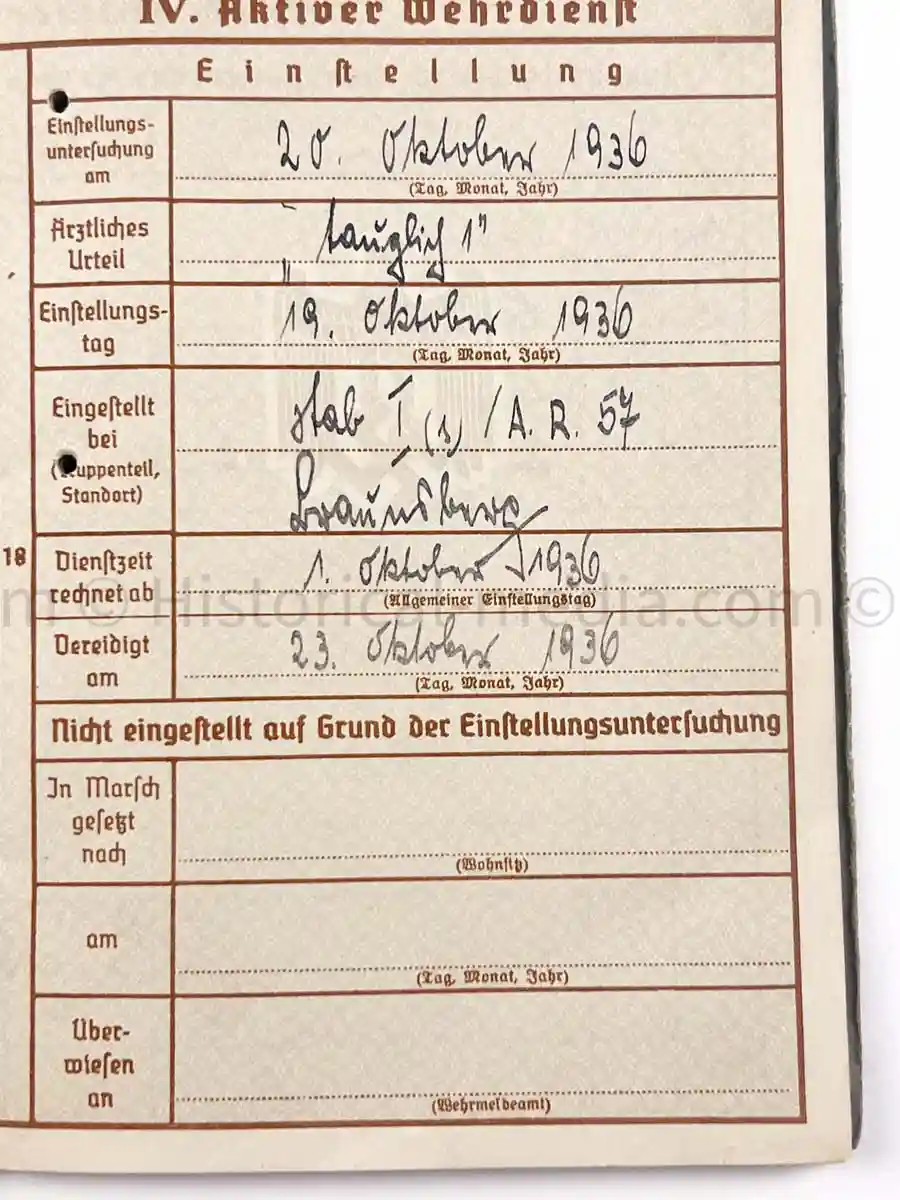 IV. Aktiver Wehrdienst
Einstellung
Einstellungs-
untersuchung
am
20. Oktober 1936
(Tag, Monat, Jahr)
Ärztliches
Urteil
"tauglich 1"
Einstellungs-
tag
19. Oktober 1936
(Tag, Monat, Jahr)
Eingestellt
bei
(Truppenteil,
Standort)
Stab I (s) / A. R. 57
Braunsberg
18
Dienstzeit
rechnet ab
1. Oktober 1936
(Allgemeiner Einstellungstag)
m © Historical-media.com ©
Vereidigt
am
23. Oktober 1936
(Tag, Monat, Jahr)
Nicht eingestellt auf Grund der Einstellungsuntersuchung
In Marsch
gesetzt
nach
(Wohnsitz)
am
(Tag, Monat, Jahr)
Über-
wiesen
an
(Wehrmeldeamt)